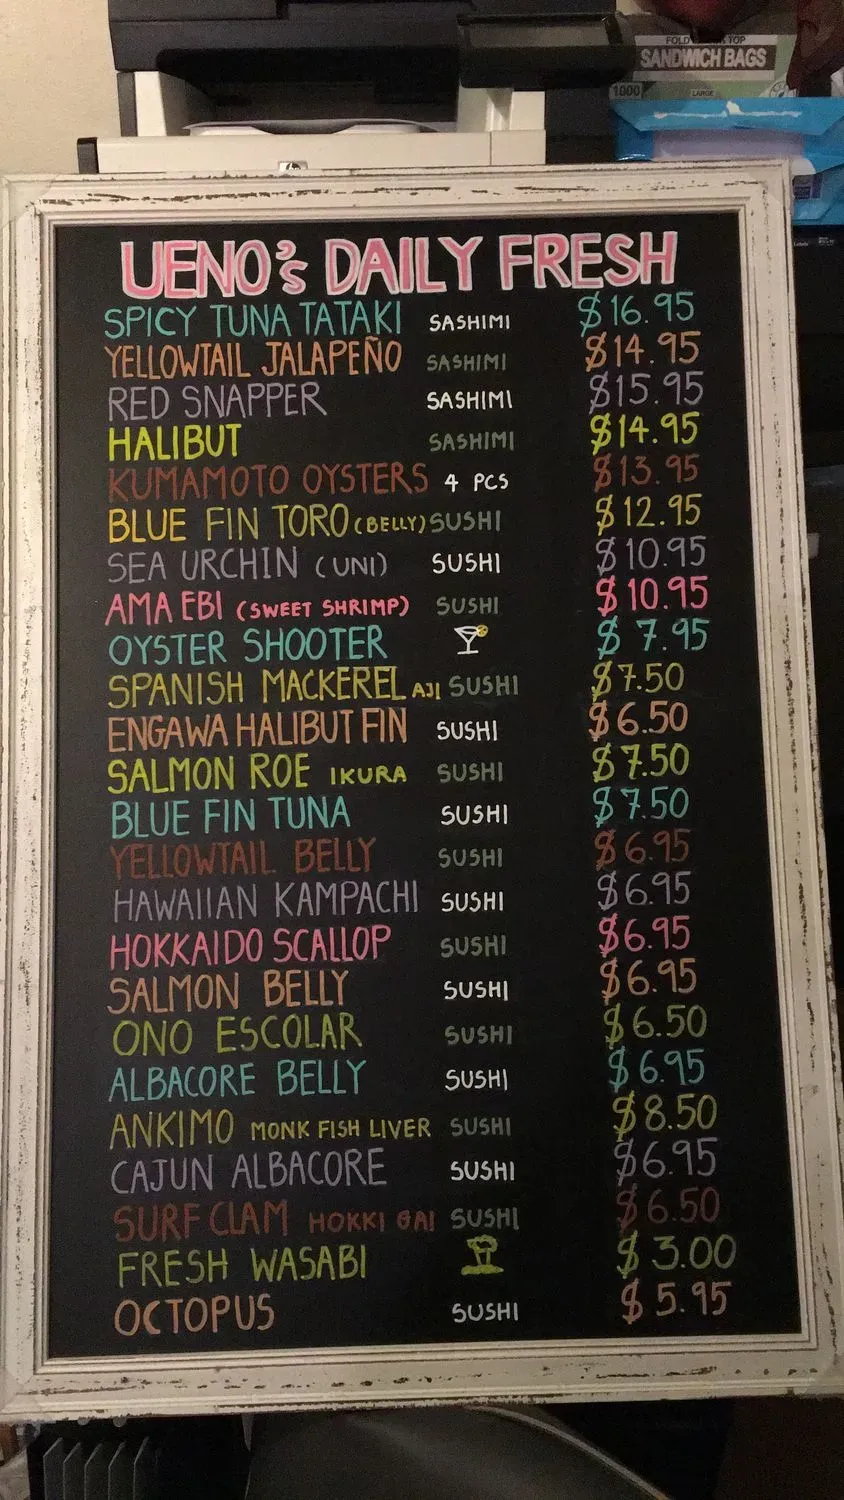 FOLD TOP
SANDWICH BAGS
1000 LARGE
hp
UENO's DAILY FRESH
SPICY TUNA TATAKI SASHIMI $16.95
YELLOWTAIL JALAPEÑO SASHIMI $14.95
RED SNAPPER SASHIMI $15.95
HALIBUT SASHIMI $14.95
KUMAMOTO OYSTERS 4 PCS $13.95
BLUE FIN TORO (BELLY) SUSHI $12.95
SEA URCHIN (UNI) SUSHI $10.95
AMA EBI (SWEET SHRIMP) SUSHI $10.95
OYSTER SHOOTER $7.95
SPANISH MACKEREL AJI SUSHI $7.50
ENGAWA HALIBUT FIN SUSHI $6.50
SALMON ROE IKURA SUSHI $7.50
BLUE FIN TUNA SUSHI $7.50
YELLOWTAIL BELLY SUSHI $6.95
HAWAIIAN KAMPACHI SUSHI $6.95
HOKKAIDO SCALLOP SUSHI $6.95
SALMON BELLY SUSHI $6.95
ONO ESCOLAR SUSHI $6.50
ALBACORE BELLY SUSHI $6.95
ANKIMO MONK FISH LIVER SUSHI $8.50
CAJUN ALBACORE SUSHI $6.95
SURF CLAM HOKKI GAI SUSHI $6.50
FRESH WASABI $3.00
OCTOPUS SUSHI $5.95